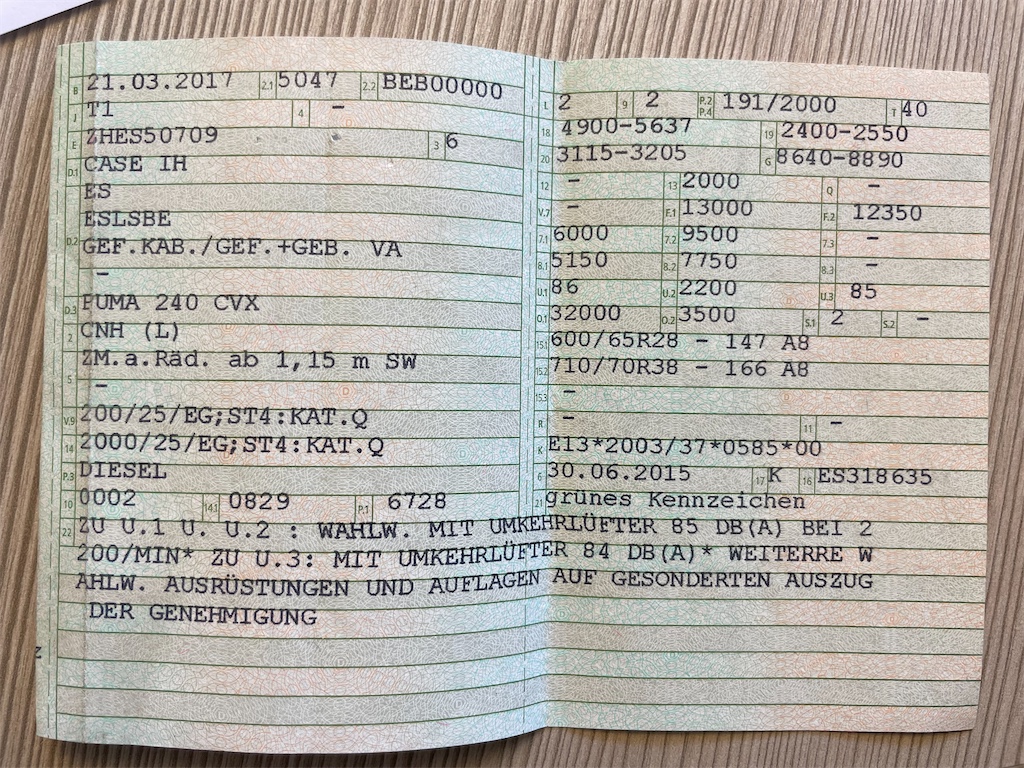 B 21.03.2017 2.1 5047 2.2 BEB00000
J T1 4 –
E ZHES50709 3 6
D.1 CASE IH
ES
ESLSBE
D.2 GEF.KAB./GEF.+GEB. VA
–
D.3 PUMA 240 CVX
2 CNH (L)
ZM.a.Räd. ab 1,15 m SW
5 –
V.9 200/25/EG;ST4:KAT.Q
14 2000/25/EG;ST4:KAT.Q
P.3 DIESEL
10 0002 14.1 0829 P.1 6728
L 2 9 2 P.2 P.4 191/2000 T 40
18 4900-5637 19 2400-2550
20 3115-3205 G 8640-8890
12 – 13 2000 Q –
V.7 – F.1 13000 F.2 12350
7.1 6000 7.2 9500 7.3 –
8.1 5150 8.2 7750 8.3 –
U.1 86 U.2 2200 U.3 85
O.1 32000 O.2 3500 S.1 2 S.2 –
15.1 600/65R28 – 147 A8
15.2 710/70R38 – 166 A8
15.3 –
R – 11 –
K E13*2003/37*0585*00
6 30.06.2015 17 K 16 ES318635
21 grünes Kennzeichen
22 ZU U.1 U. U.2 : WAHLW. MIT UMKEHRLÜFTER 85 DB(A) BEI 2
200/MIN* ZU U.3: MIT UMKEHRLÜFTER 84 DB(A)* WEITERRE W
AHLW. AUSRÜSTUNGEN UND AUFLAGEN AUF GESONDERTEN AUSZUG
DER GENEHMIGUNG
z